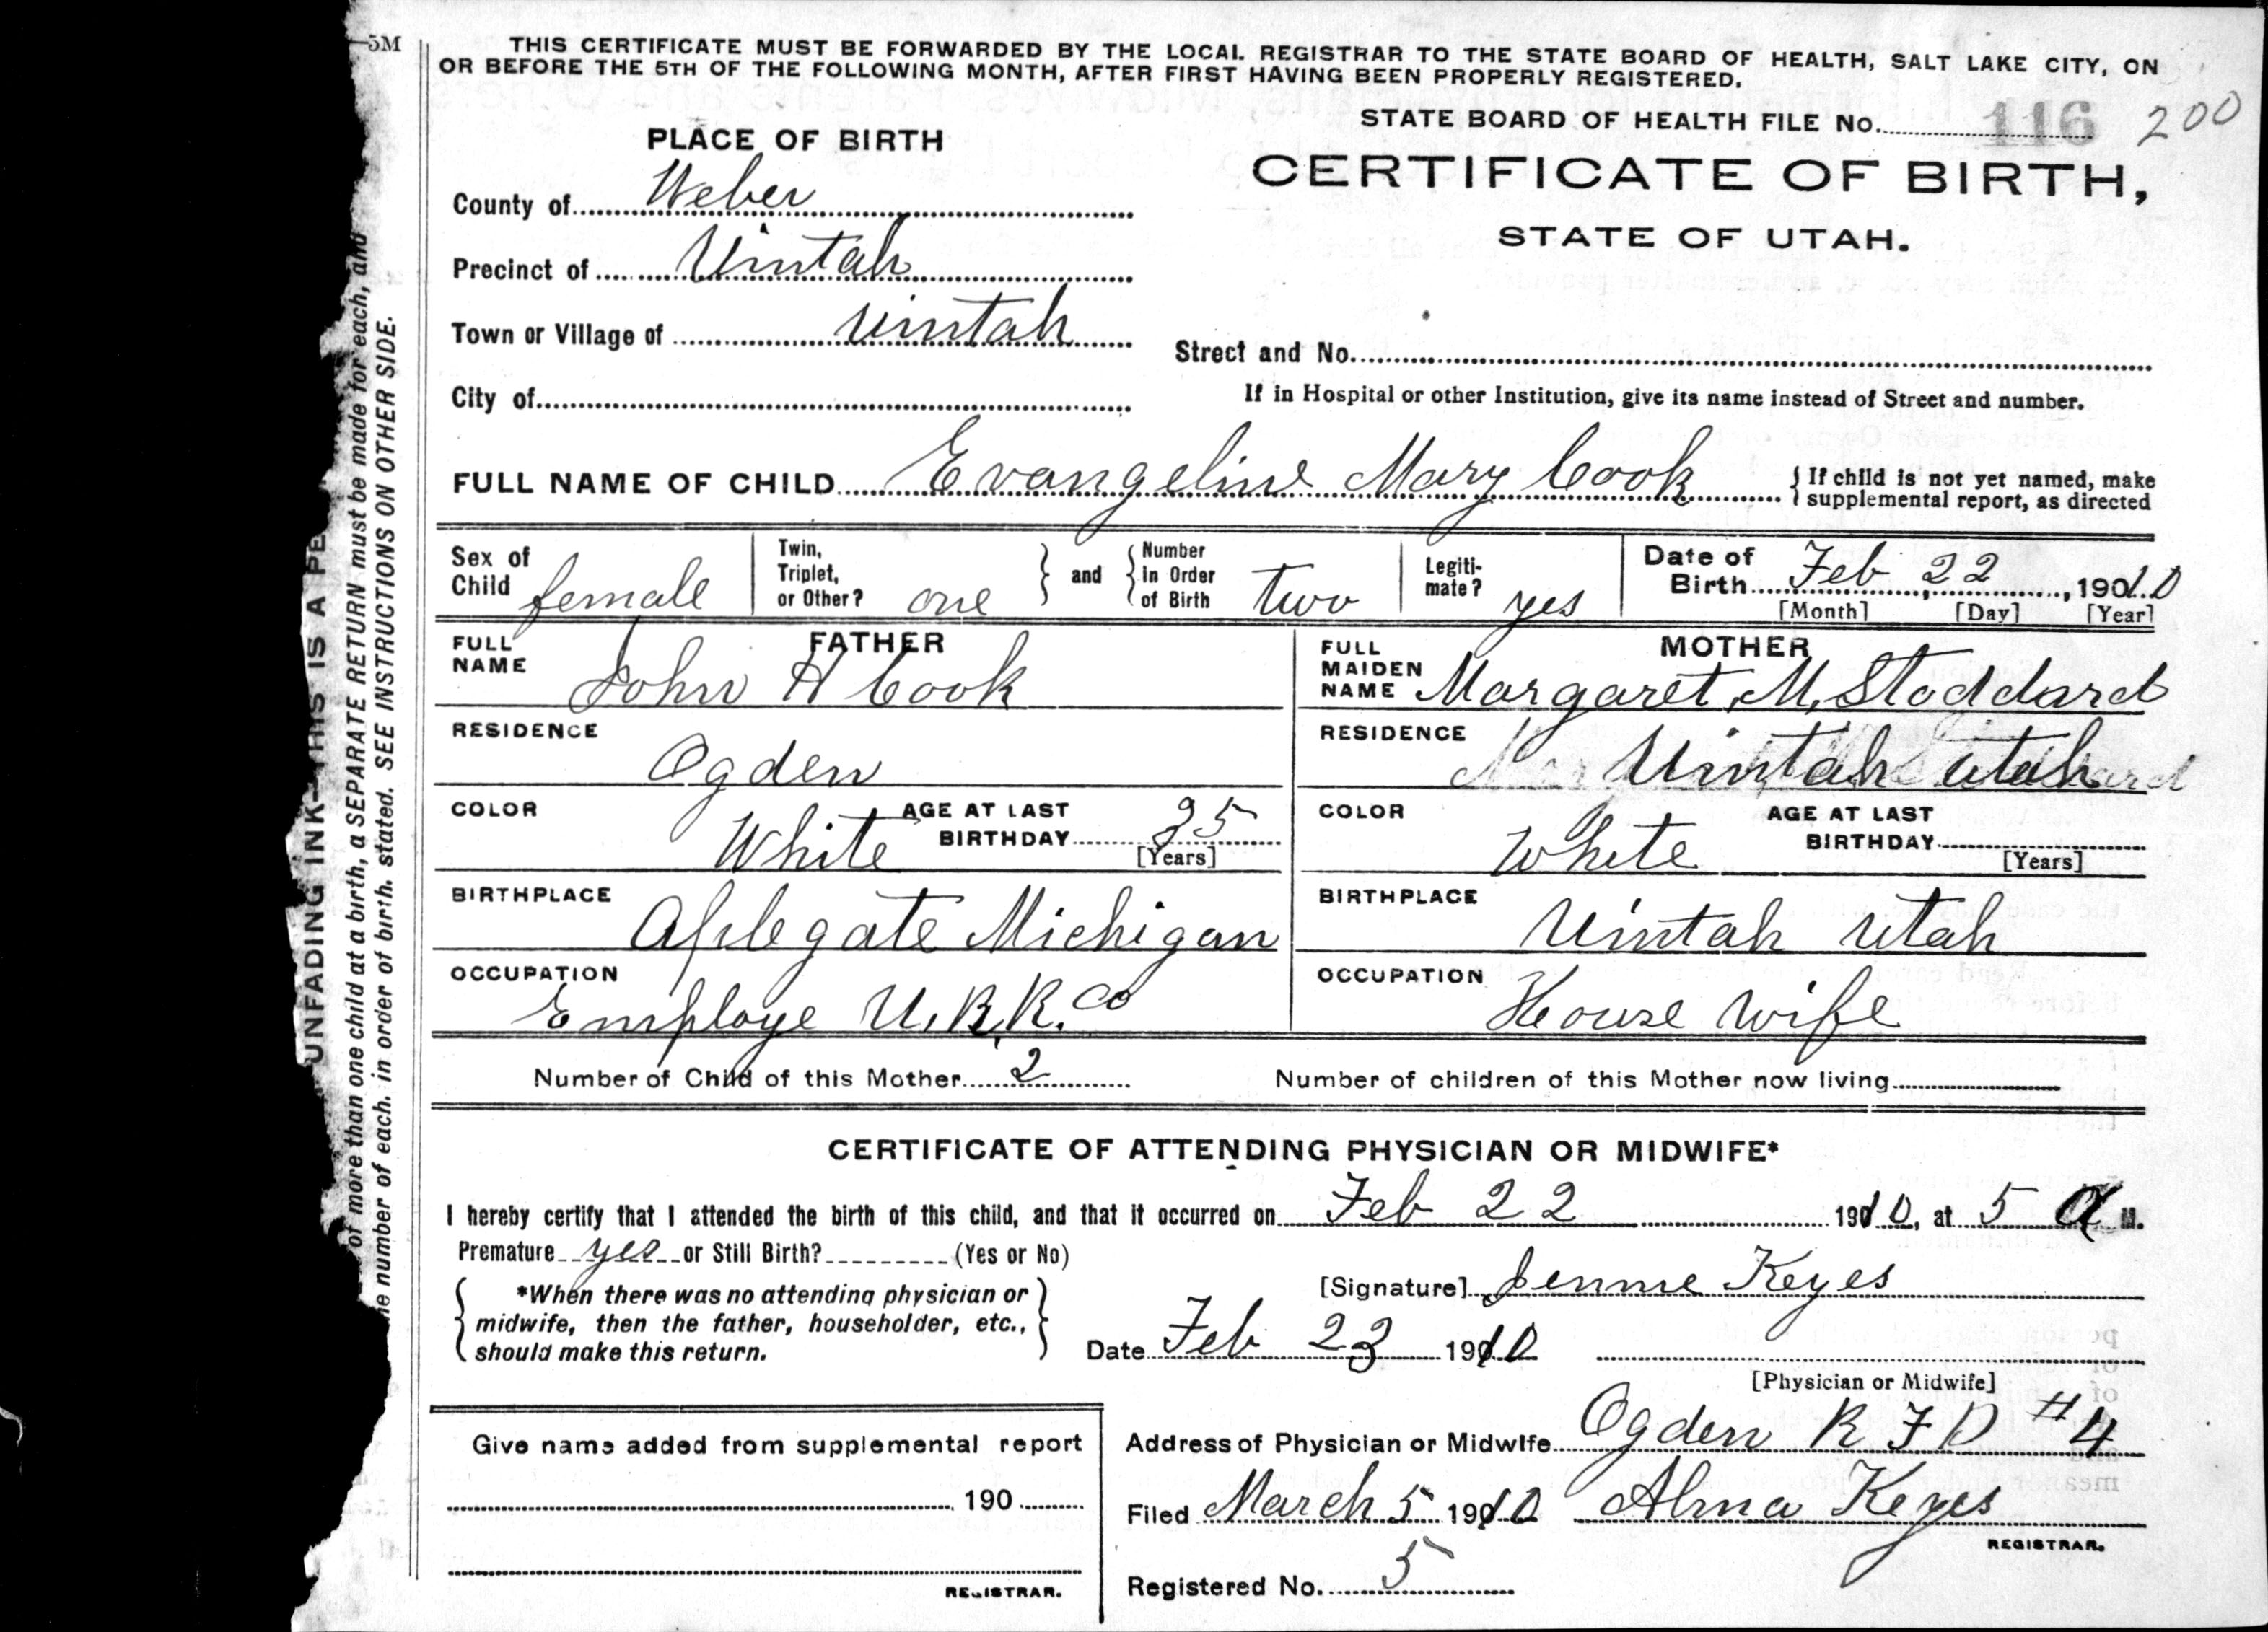 5M
THIS CERTIFICATE MUST BE FORWARDED BY THE LOCAL REGISTRAR TO THE STATE BOARD OF HEALTH, SALT LAKE CITY, ON
OR BEFORE THE 5TH OF THE FOLLOWING MONTH, AFTER FIRST HAVING BEEN PROPERLY REGISTERED.
STATE BOARD OF HEALTH FILE No. 116 200
PLACE OF BIRTH
CERTIFICATE OF BIRTH,
STATE OF UTAH.
County of Weber
Precinct of Uintah
Town or Village of Uintah
Street and No.
City of
If in Hospital or other Institution, give its name instead of Street and number.
FULL NAME OF CHILD Evangeline Mary Cook { If child is not yet named, make
supplemental report, as directed
Sex of Child female
Twin, Triplet, or Other? one } and { Number in Order of Birth two
Legiti-mate? yes
Date of Birth Feb 22, 1910
[Month] [Day] [Year]
FATHER
FULL NAME John H Cook
RESIDENCE
Ogden
COLOR White AGE AT LAST BIRTHDAY 35
[Years]
BIRTHPLACE
Aplegate Michigan
OCCUPATION
Employe U.R.R. Co
MOTHER
FULL MAIDEN NAME Margaret M. Stoddard
RESIDENCE
Uintah Utah
COLOR White AGE AT LAST BIRTHDAY
[Years]
BIRTHPLACE
Uintah Utah
OCCUPATION
House wife
Number of Child of this Mother 2 Number of children of this Mother now living
CERTIFICATE OF ATTENDING PHYSICIAN OR MIDWIFE*
I hereby certify that I attended the birth of this child, and that it occurred on Feb 22 1910, at 5 A M.
Premature yes or Still Birth? (Yes or No)
*When there was no attending physician or
midwife, then the father, householder, etc.,
should make this return.
[Signature] Jennie Keyes
Date Feb 23 1910
[Physician or Midwife]
Address of Physician or Midwife Ogden R F D #4
Filed March 5 1910 Alma Keyes
REGISTRAR.
Registered No. 5
Give name added from supplemental report
190
REGISTRAR.
UNFADING INK—THIS IS A PE
of more than one child at a birth, a SEPARATE RETURN must be made for each, and
number of each, in order of birth, stated. SEE INSTRUCTIONS ON OTHER SIDE.